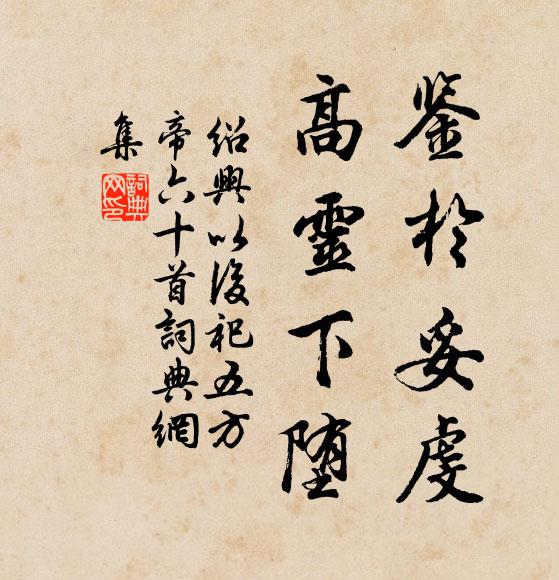 鉴於妥虔
高靈下堕
紹興以後祀五方
帝六十首詞典網
集
詞典網印